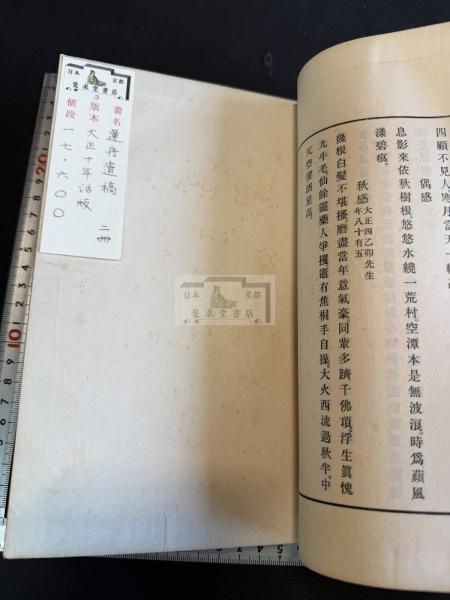 四顧不見人寒月當天一
偶感
息影來依秋樹根。悠悠水繞一荒村。空潭本是無波浪。時爲蘋風
漾碧痕。
秋感 大正四乙卯先生
年八十有五
幾根白髮不堪搔。磨盡當年意氣豪。同輩多躋千佛頂。浮生眞愧
九牛毛。仙餘靈藥人爭攫。竈有焦桐手自操。大火西流過秋半。中
天空望酒星高
日本 京都
斐求堂書店
書名 蓮舟遺稿 二冊
版本 大正十年活版
値段 一七、六〇〇
日本 京都
斐求堂書店
20
10